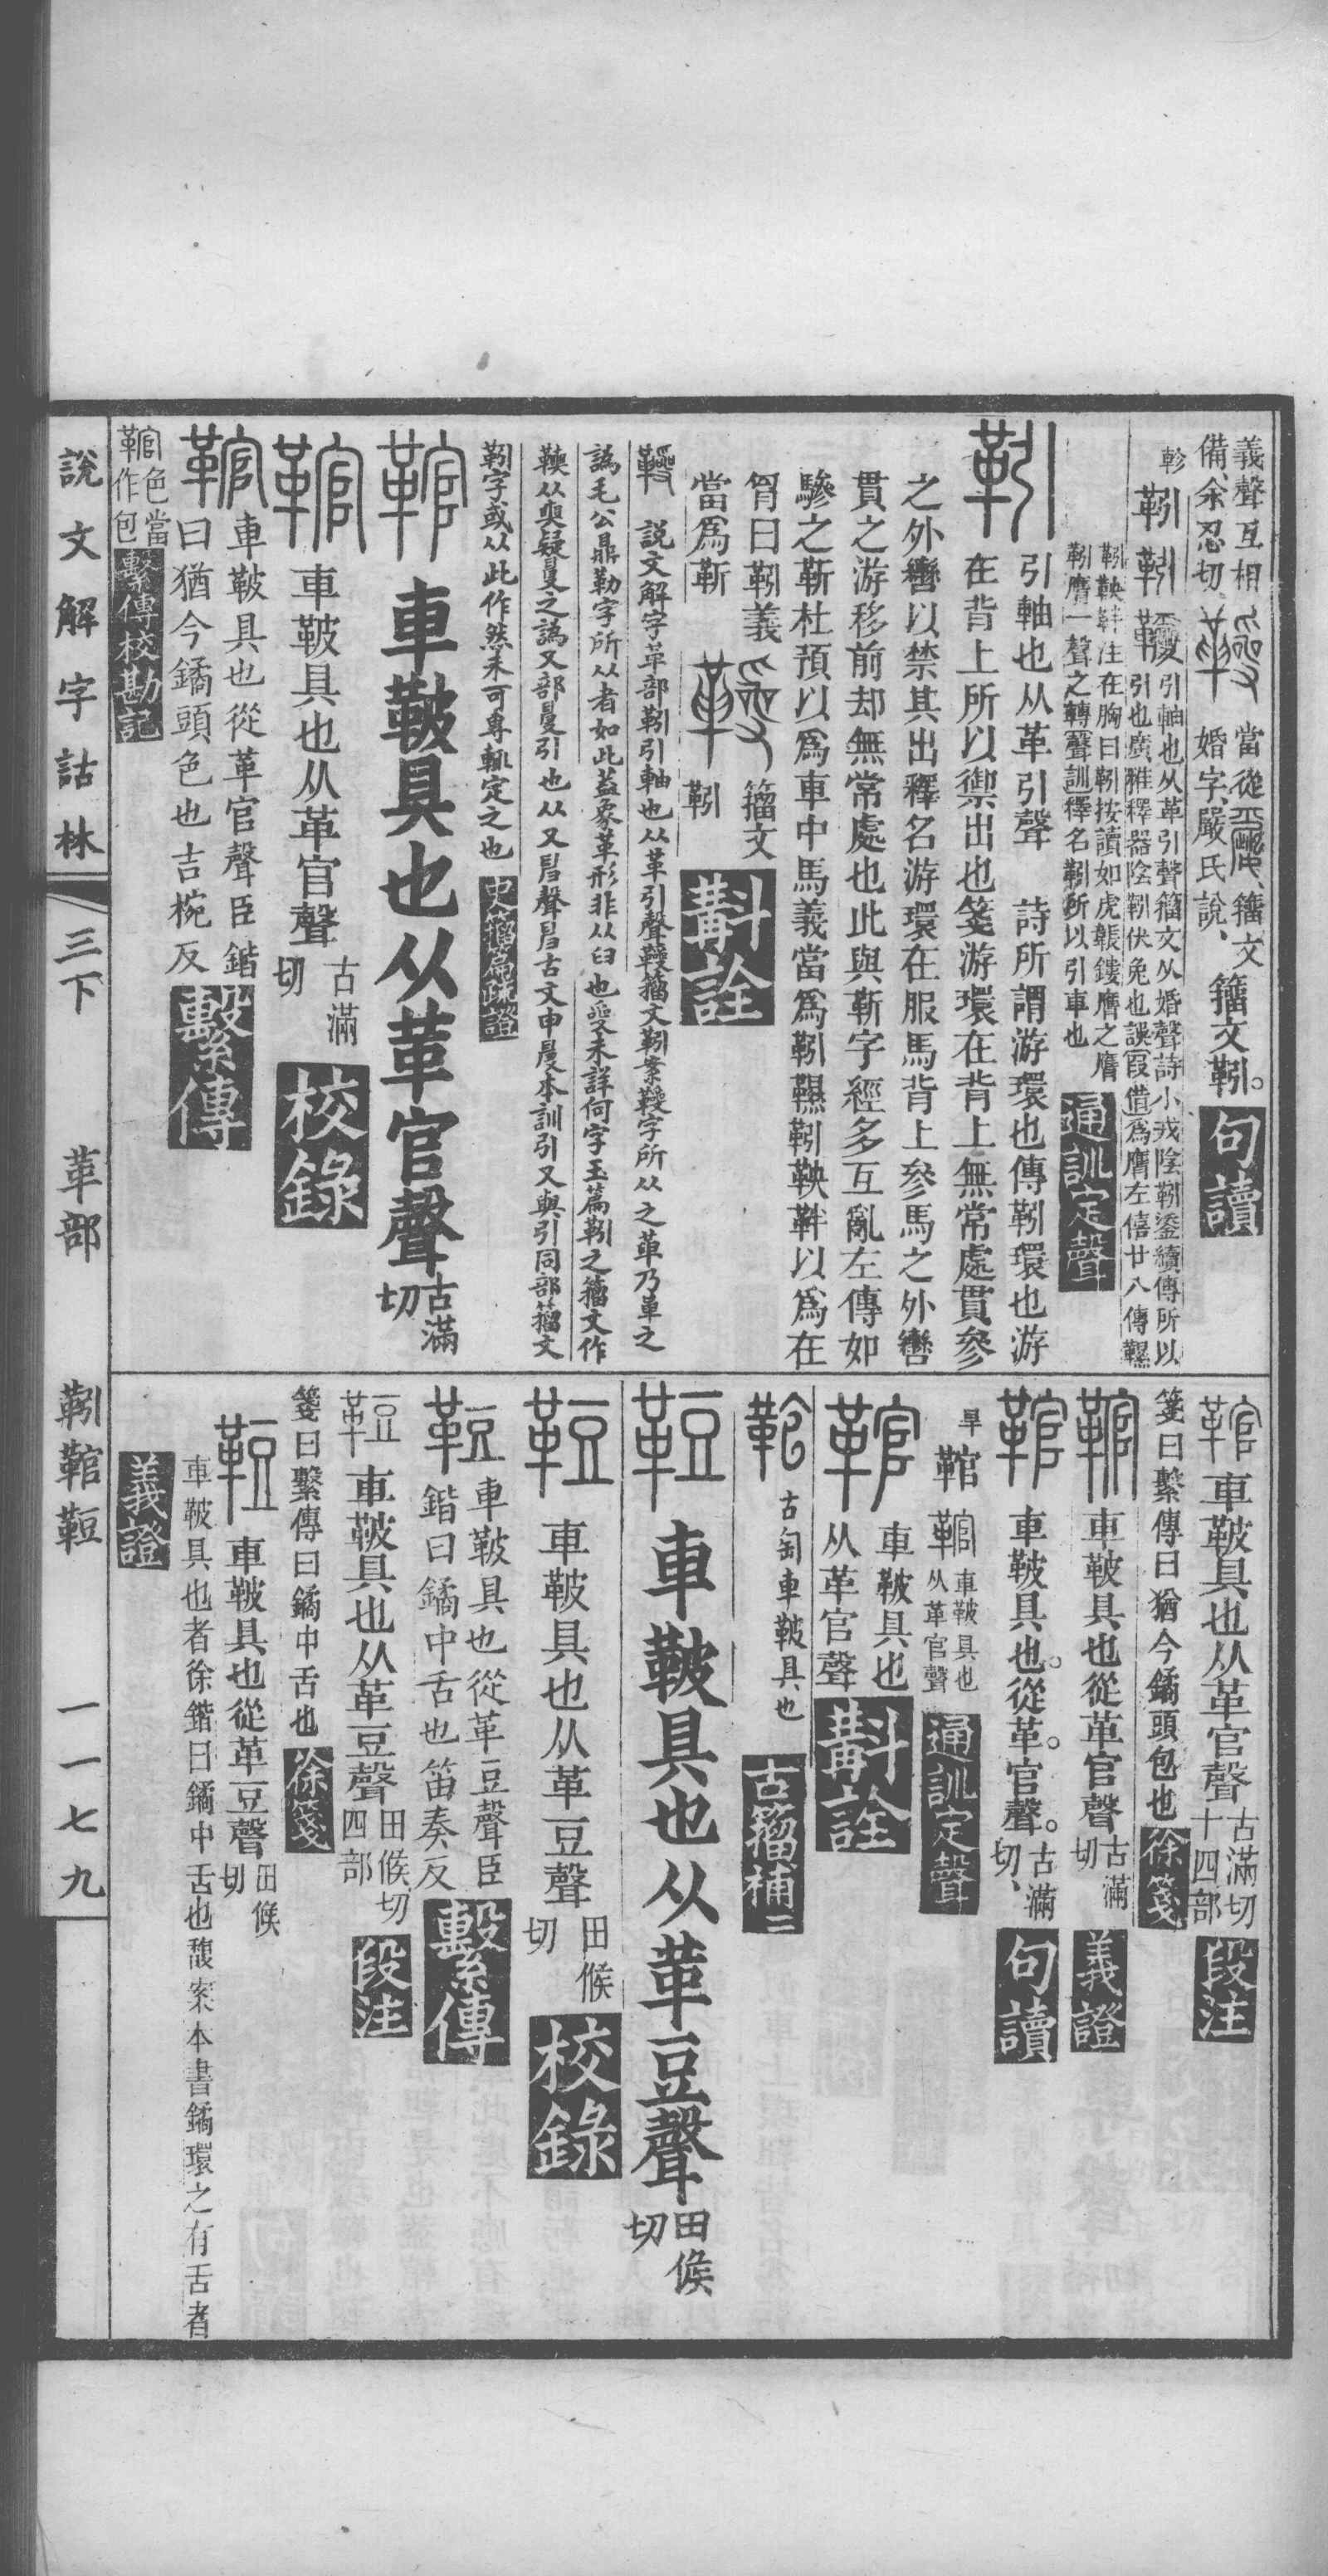 義聲互相
備、余忍切、
當從籀文
婚字、嚴氏說、
籀文靷。
句讀
軫靷
引軸也从革引聲籀文从婚聲詩小戎陰靷鋈續傳所以
引也廣雅釋器陰靷伏兔也誤叚借爲膺左僖廿八傳韅
靷鞅靽注在胸曰靷按讀如虎韔鏤膺之膺
靷膺一聲之轉聲訓釋名靷所以引車也
通訓定聲
引軸也从革引聲　詩所謂游環也傳靷環也游
在背上所以禦出也箋游環在背上無常處貫參
之外轡以禁其出釋名游環在服馬背上參馬之外轡
貫之游移前却無常處也此與靳字經多互亂左傳如
驂之靳杜預以爲車中馬義當爲靷韅靷鞅靽以爲在
胷曰靷義
當爲靳
籀文
靷
斠詮
說文解字革部靷引軸也从革引聲籀文靷案字所从之革乃革之
譌毛公鼎勒字所从者如此葢象革形非从臼也未詳何字玉篇靷之籀文作
从疑之譌又部引也从又聲古文申本訓引又與引同部籀文
靷字或从此作然未可專輒定之也
史籀篇疏證
車鞁具也从革官聲
古滿
切
車鞁具也从革官聲
古滿
切
校錄
車鞁具也從革官聲臣鍇
曰猶今鐍頭色也吉椀反
繫傳
色當
作包
繫傳校勘記
車鞁具也从革官聲
古滿切
十四部
段注
箋曰繫傳曰猶今鐍頭包也
徐箋
車鞁具也從革官聲
古滿
切
義證
車鞁具也。從革。官聲。
古滿
切、
句讀
旱䩪
車鞁具也
从革官聲
通訓定聲
車鞁具也
从革官聲
斠詮
古匋車鞁具也
古籀補二
車鞁具也从革豆聲
田候
切
車鞁具也从革豆聲
田候
切
校錄
車鞁具也從革豆聲臣
鍇曰鐍中舌也笛奏反
繫傳
車鞁具也从革豆聲
田候切
四部
段注
箋曰繫傳曰鐍中舌也
徐箋
車鞁具也從革豆聲
田候
切
車鞁具也者徐鍇曰鐍中舌也馥案本書鐍環之有舌者
義證
說文解字詁林
三下
革部
靷䩪䩞
一一七九